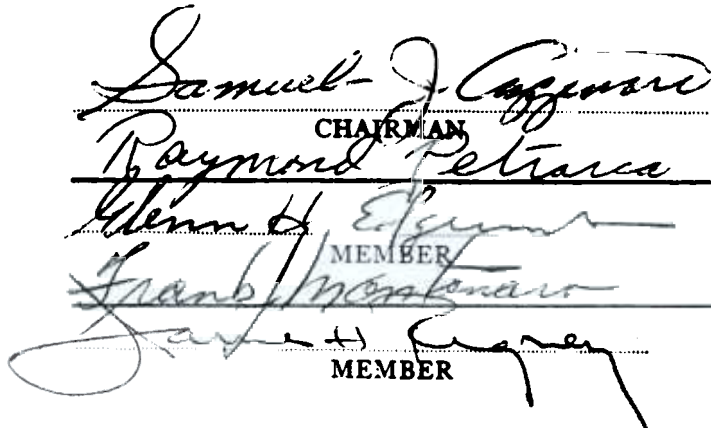 Samuel J. Azzinaro
CHAIRMAN
Raymond Petrarca
Glenn H
MEMBER
Frank Montanaro
James H
MEMBER